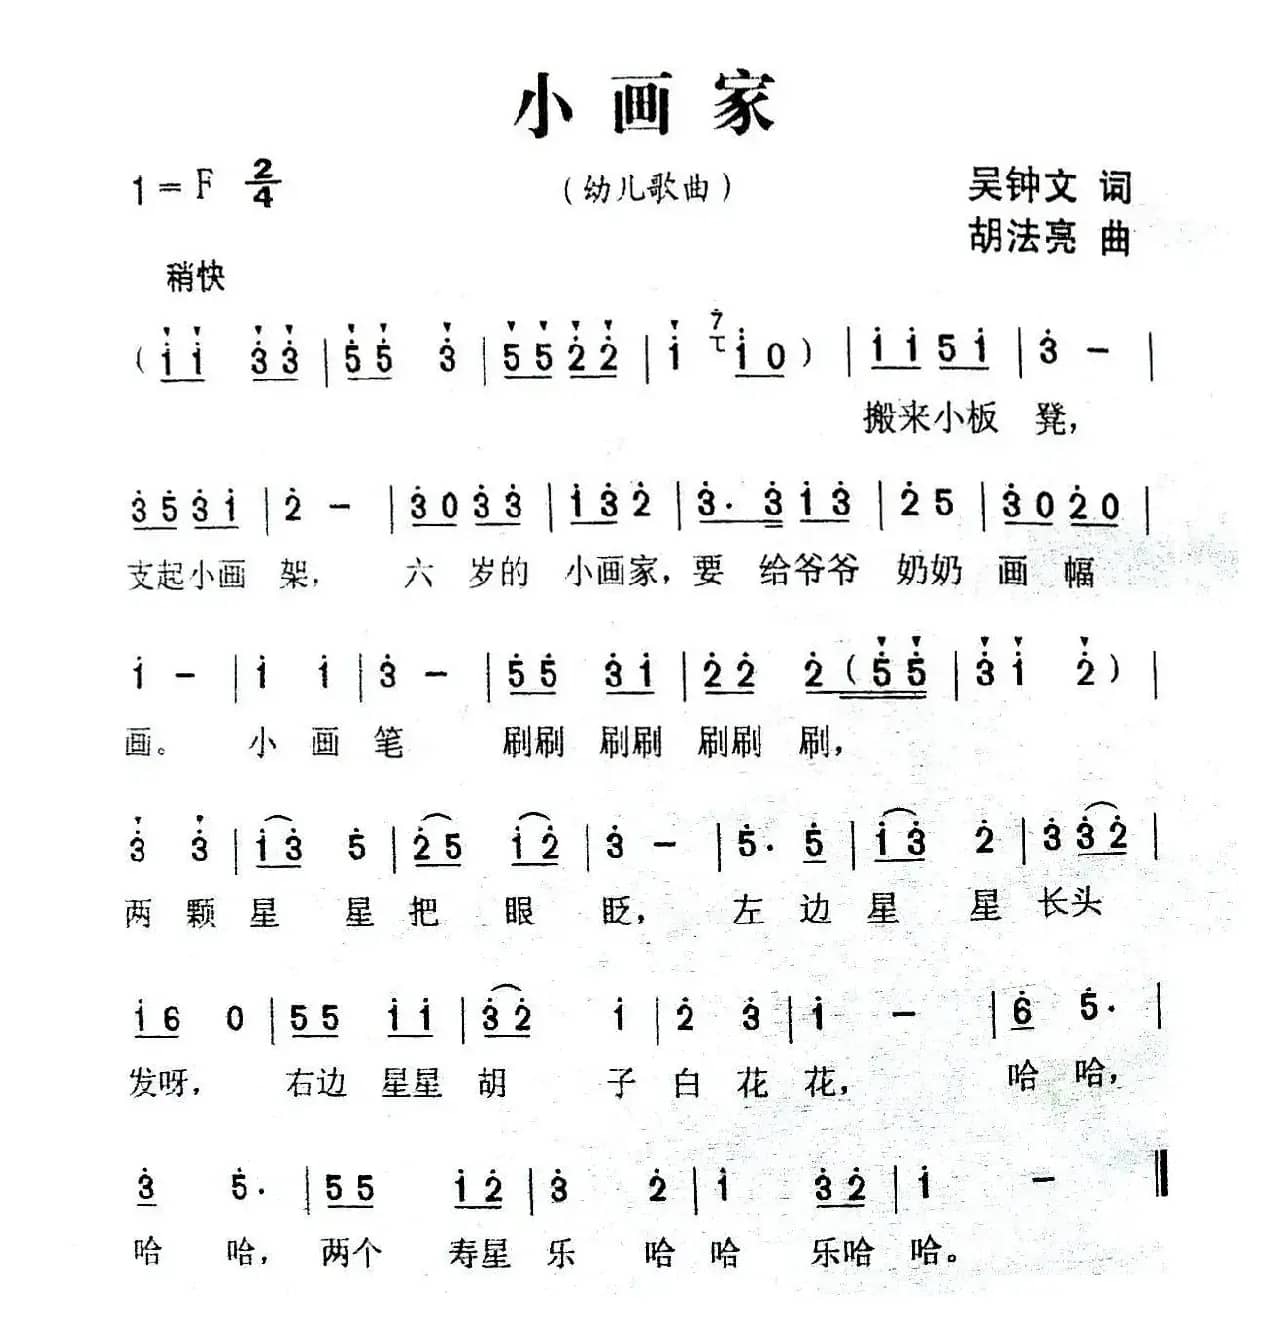 小画家
1=F 2/4
（幼儿歌曲）
吴钟文 词
胡法亮 曲
稍快
( i̇ i̇ 3̇ 3̇ | 5̇ 5̇ 3̇ | 5̇ 5̇ 2̇ 2̇ | i̇ i̇ 0 ) | i̇ i̇ 5 i̇ | 3̇ - |
搬来小板 凳，
3̇ 5̇ 3̇ i̇ | 2̇ - | 3̇ 0 3̇ 3̇ | i̇ 3̇ 2̇ | 3̇. 3̇ i̇ 3̇ | 2̇ 5 | 3̇ 0 2̇ 0 |
支起小画 架， 六 岁的 小画家，要 给爷爷 奶奶 画 幅
i̇ - | i̇ i̇ | 3̇ - | 5̇ 5̇ 3̇ i̇ | 2̇ 2̇ 2̇ ( 5̇ 5̇ | 3̇ i̇ 2̇ ) |
画。 小 画 笔 刷刷 刷刷 刷刷 刷，
3̇ 3̇ | i̇ 3̇ 5̇ | 2̇ 5 i̇ 2̇ | 3̇ - | 5̇. 5̇ | i̇ 3̇ 2̇ | 3̇ 3̇ 2̇ |
两 颗 星 星 把 眼 眨， 左 边 星 星 长头
i̇ 6 0 | 5 5 i̇ i̇ | 3̇ 2̇ i̇ | 2̇ 3̇ | i̇ - | 6̇ 5̇. |
发呀， 右边 星星 胡 子 白 花 花， 哈 哈，
3̇ 5̇. | 5̇ 5̇ i̇ 2̇ | 3̇ 2̇ | i̇ 3̇ 2̇ | i̇ - ‖
哈 哈， 两个 寿星 乐 哈 哈 乐哈 哈。